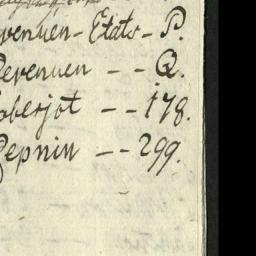 evenuen - Etats - P.
Revenuen - - Q.
oberjot - - 178.
Pepnin - - 299.